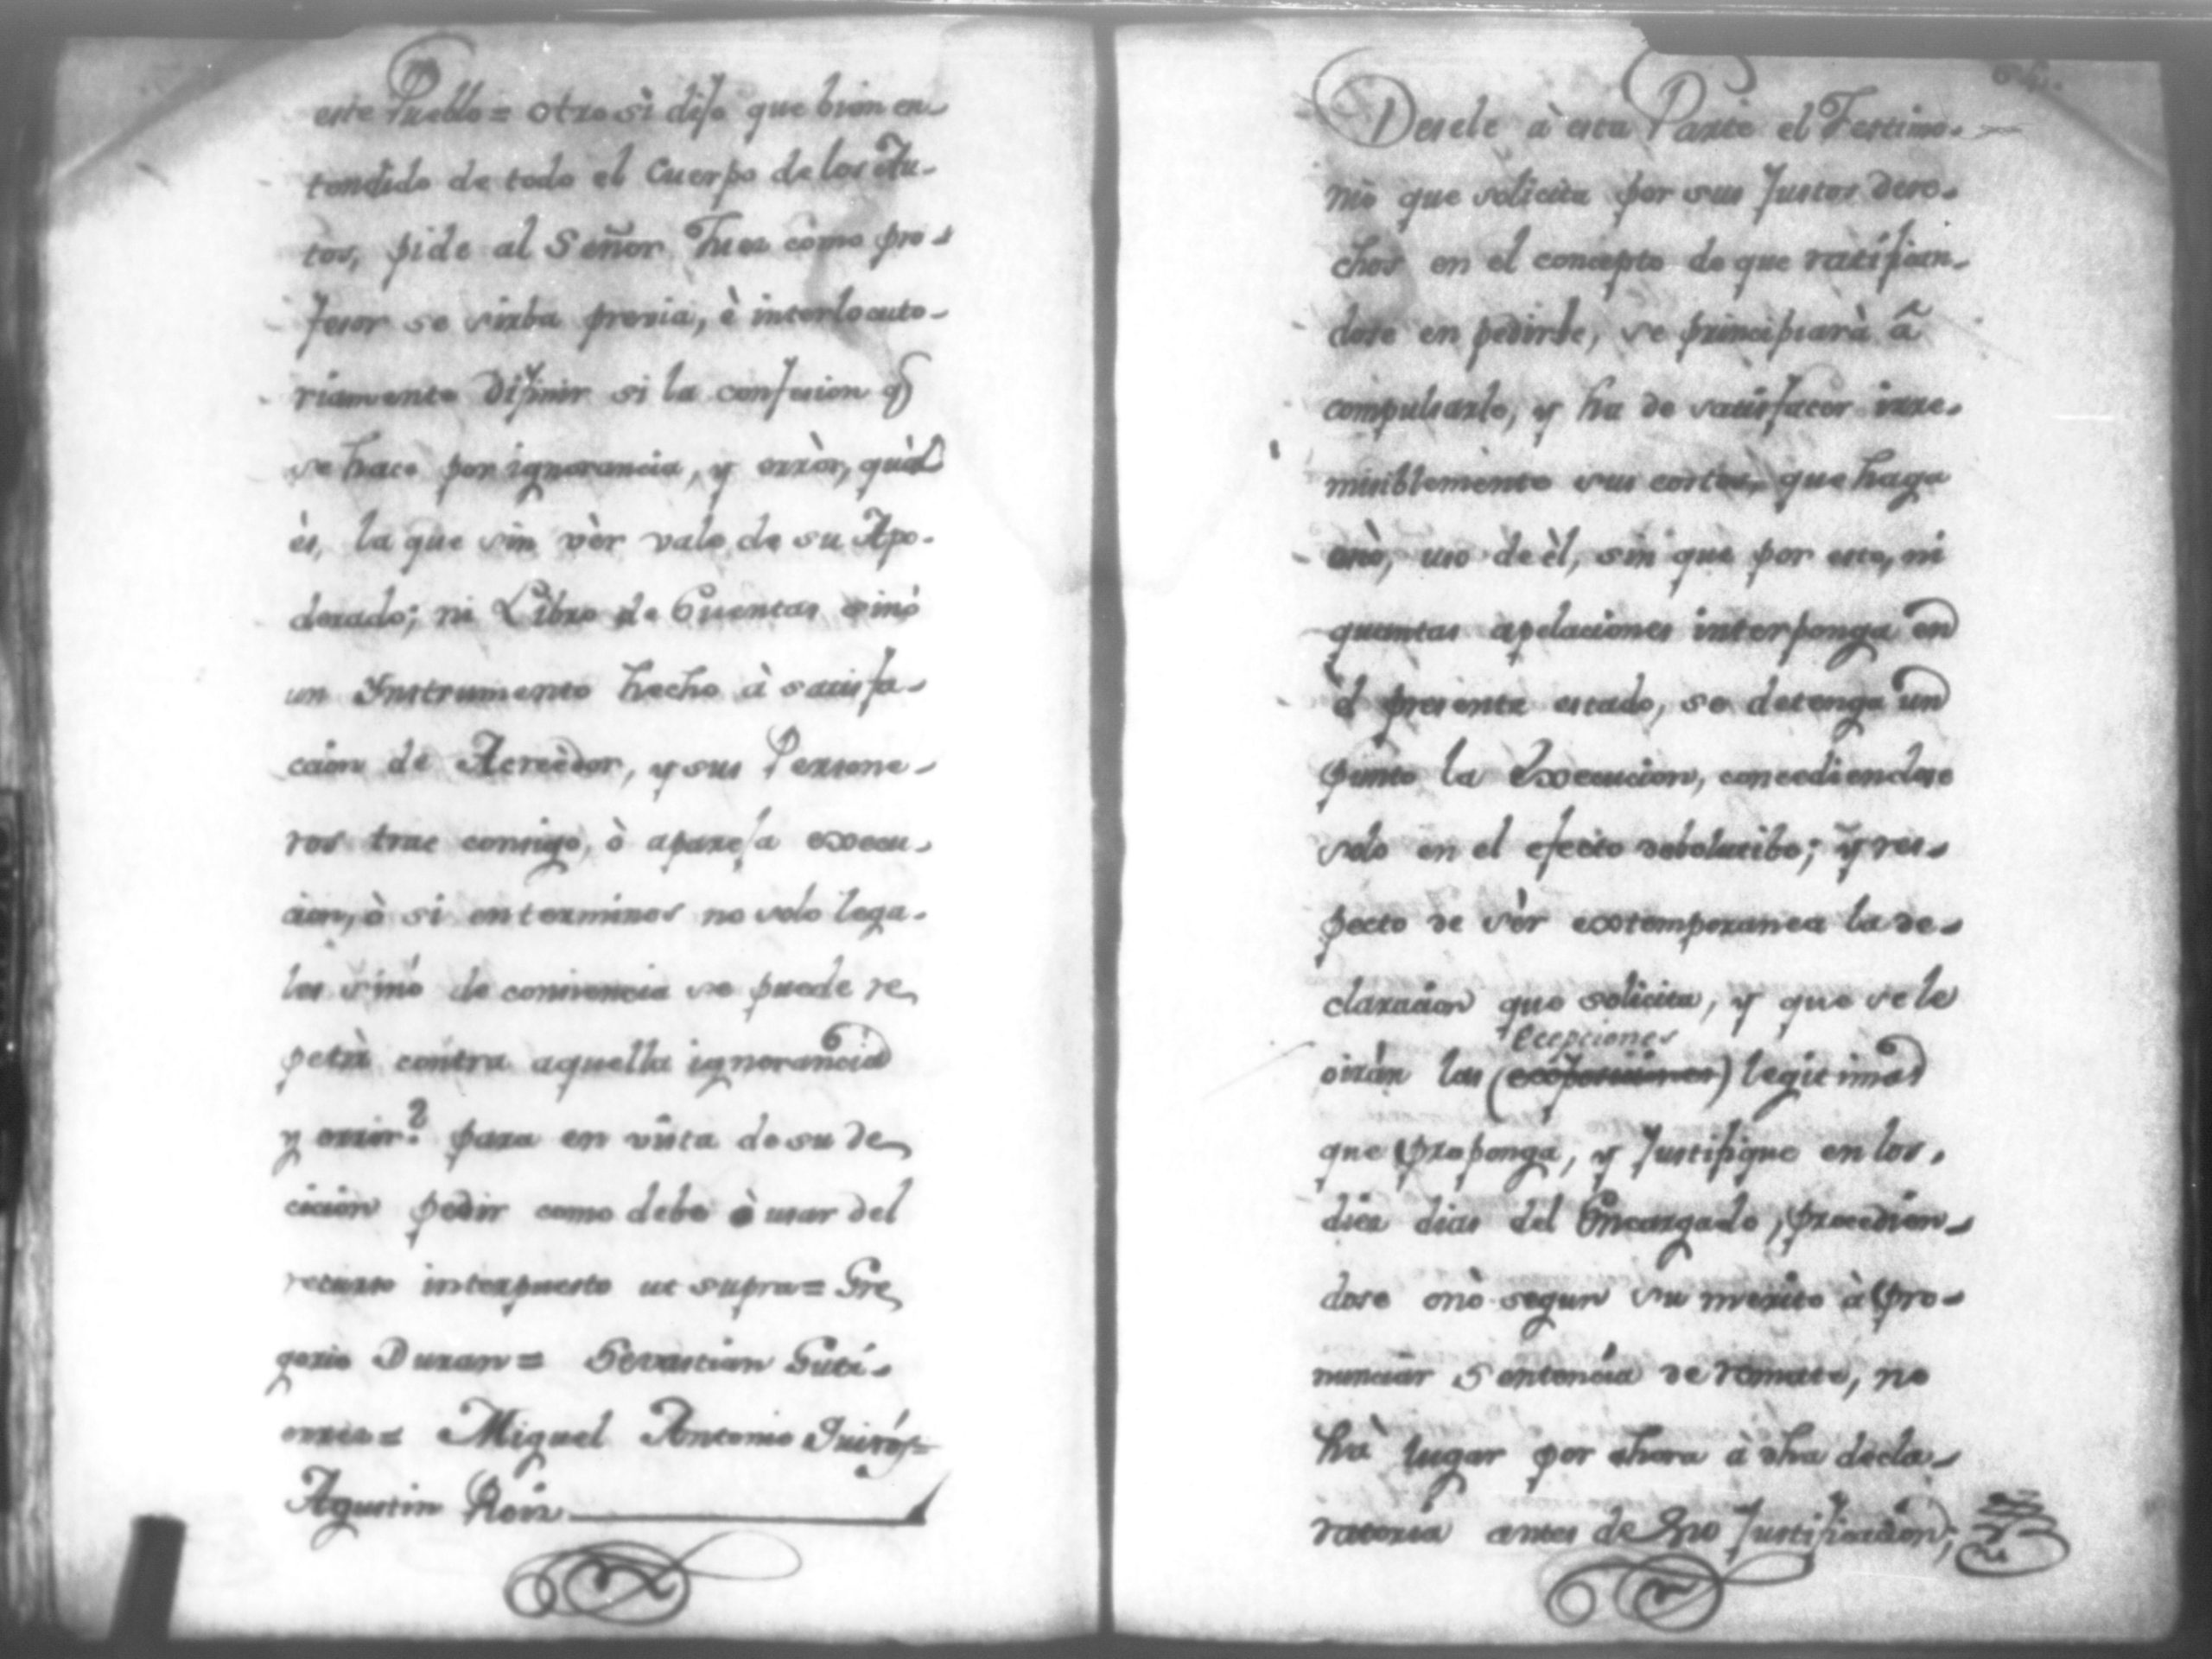 este Pueblo = otro sì dijo que bien en-
tendido de todo el Cuerpo de los Au-
tos, pide al Señor Juez como pro-
fesor se sirba previa, è interlocuto-
riamente difinir si la confesion q
se hace por ignorancia, y erròr, quàl
ès, la que sin vèr vale de su Apo-
derado; ni Libro de Cuentas sinò
un Instrumento hecho à satisfa-
cion de Acreèdor, y sus Persone-
ros trae consigo, ò apareja execu-
cion, ò si en terminos no solo lega-
les sinó de conivencia se puede re
petir contra aquella ignorancia
y error? para en vista de su de
cicion pedir como debe ò usar del
recurso interpuesto ut supra = Gre
gorio Duran = Sevastian Guti-
errez = Miguel Antonio Quirós =
Agustin Roiz
Desele à esta Parte el Testimo-
nio que solicita por sus Justos dere-
chos en el concepto de que ratifican-
dose en pedirle, se principiarà à
compulsarlo, y ha de satisfacer irre-
misiblemente sus costos, que haga
onò, uso de èl, sin que por esto, ni
quantas apelaciones interponga en
el presente estado, se detenga un
punto la Execucion, concediendose
solo en el efecto debolutibo; y res-
pecto de sèr extemporanea la de-
claracion que solicita, y que se le
Ecepciones
oiràn las () legitimas
que proponga, y Justifique en los
diez dias del Encargado, procedien-
dose onò segun su merito à pro-
nunciar Sentencia de remate, no
hà lugar por ahora à dha decla-
ratoria antes de Justificacion;